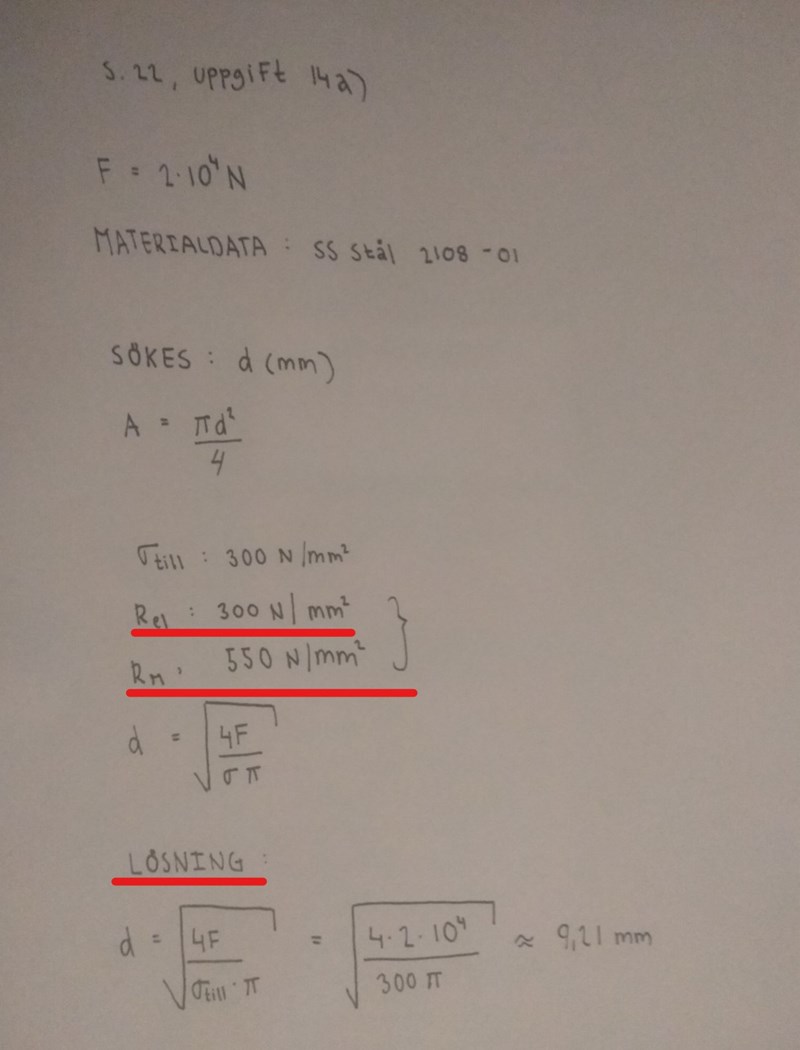 S. 22, uppgift 14a)
F = 2·10⁴ N
MATERIALDATA : SS stål 2108-01
SÖKES : d (mm)
A = πd²/4
σtill : 300 N/mm²
Rel : 300 N/mm² }
RM, 550 N/mm²
d = √(4F/σπ)
LÖSNING :
d = √(4F/σtill·π) = √(4·2·10⁴/300π) ≈ 9,21 mm